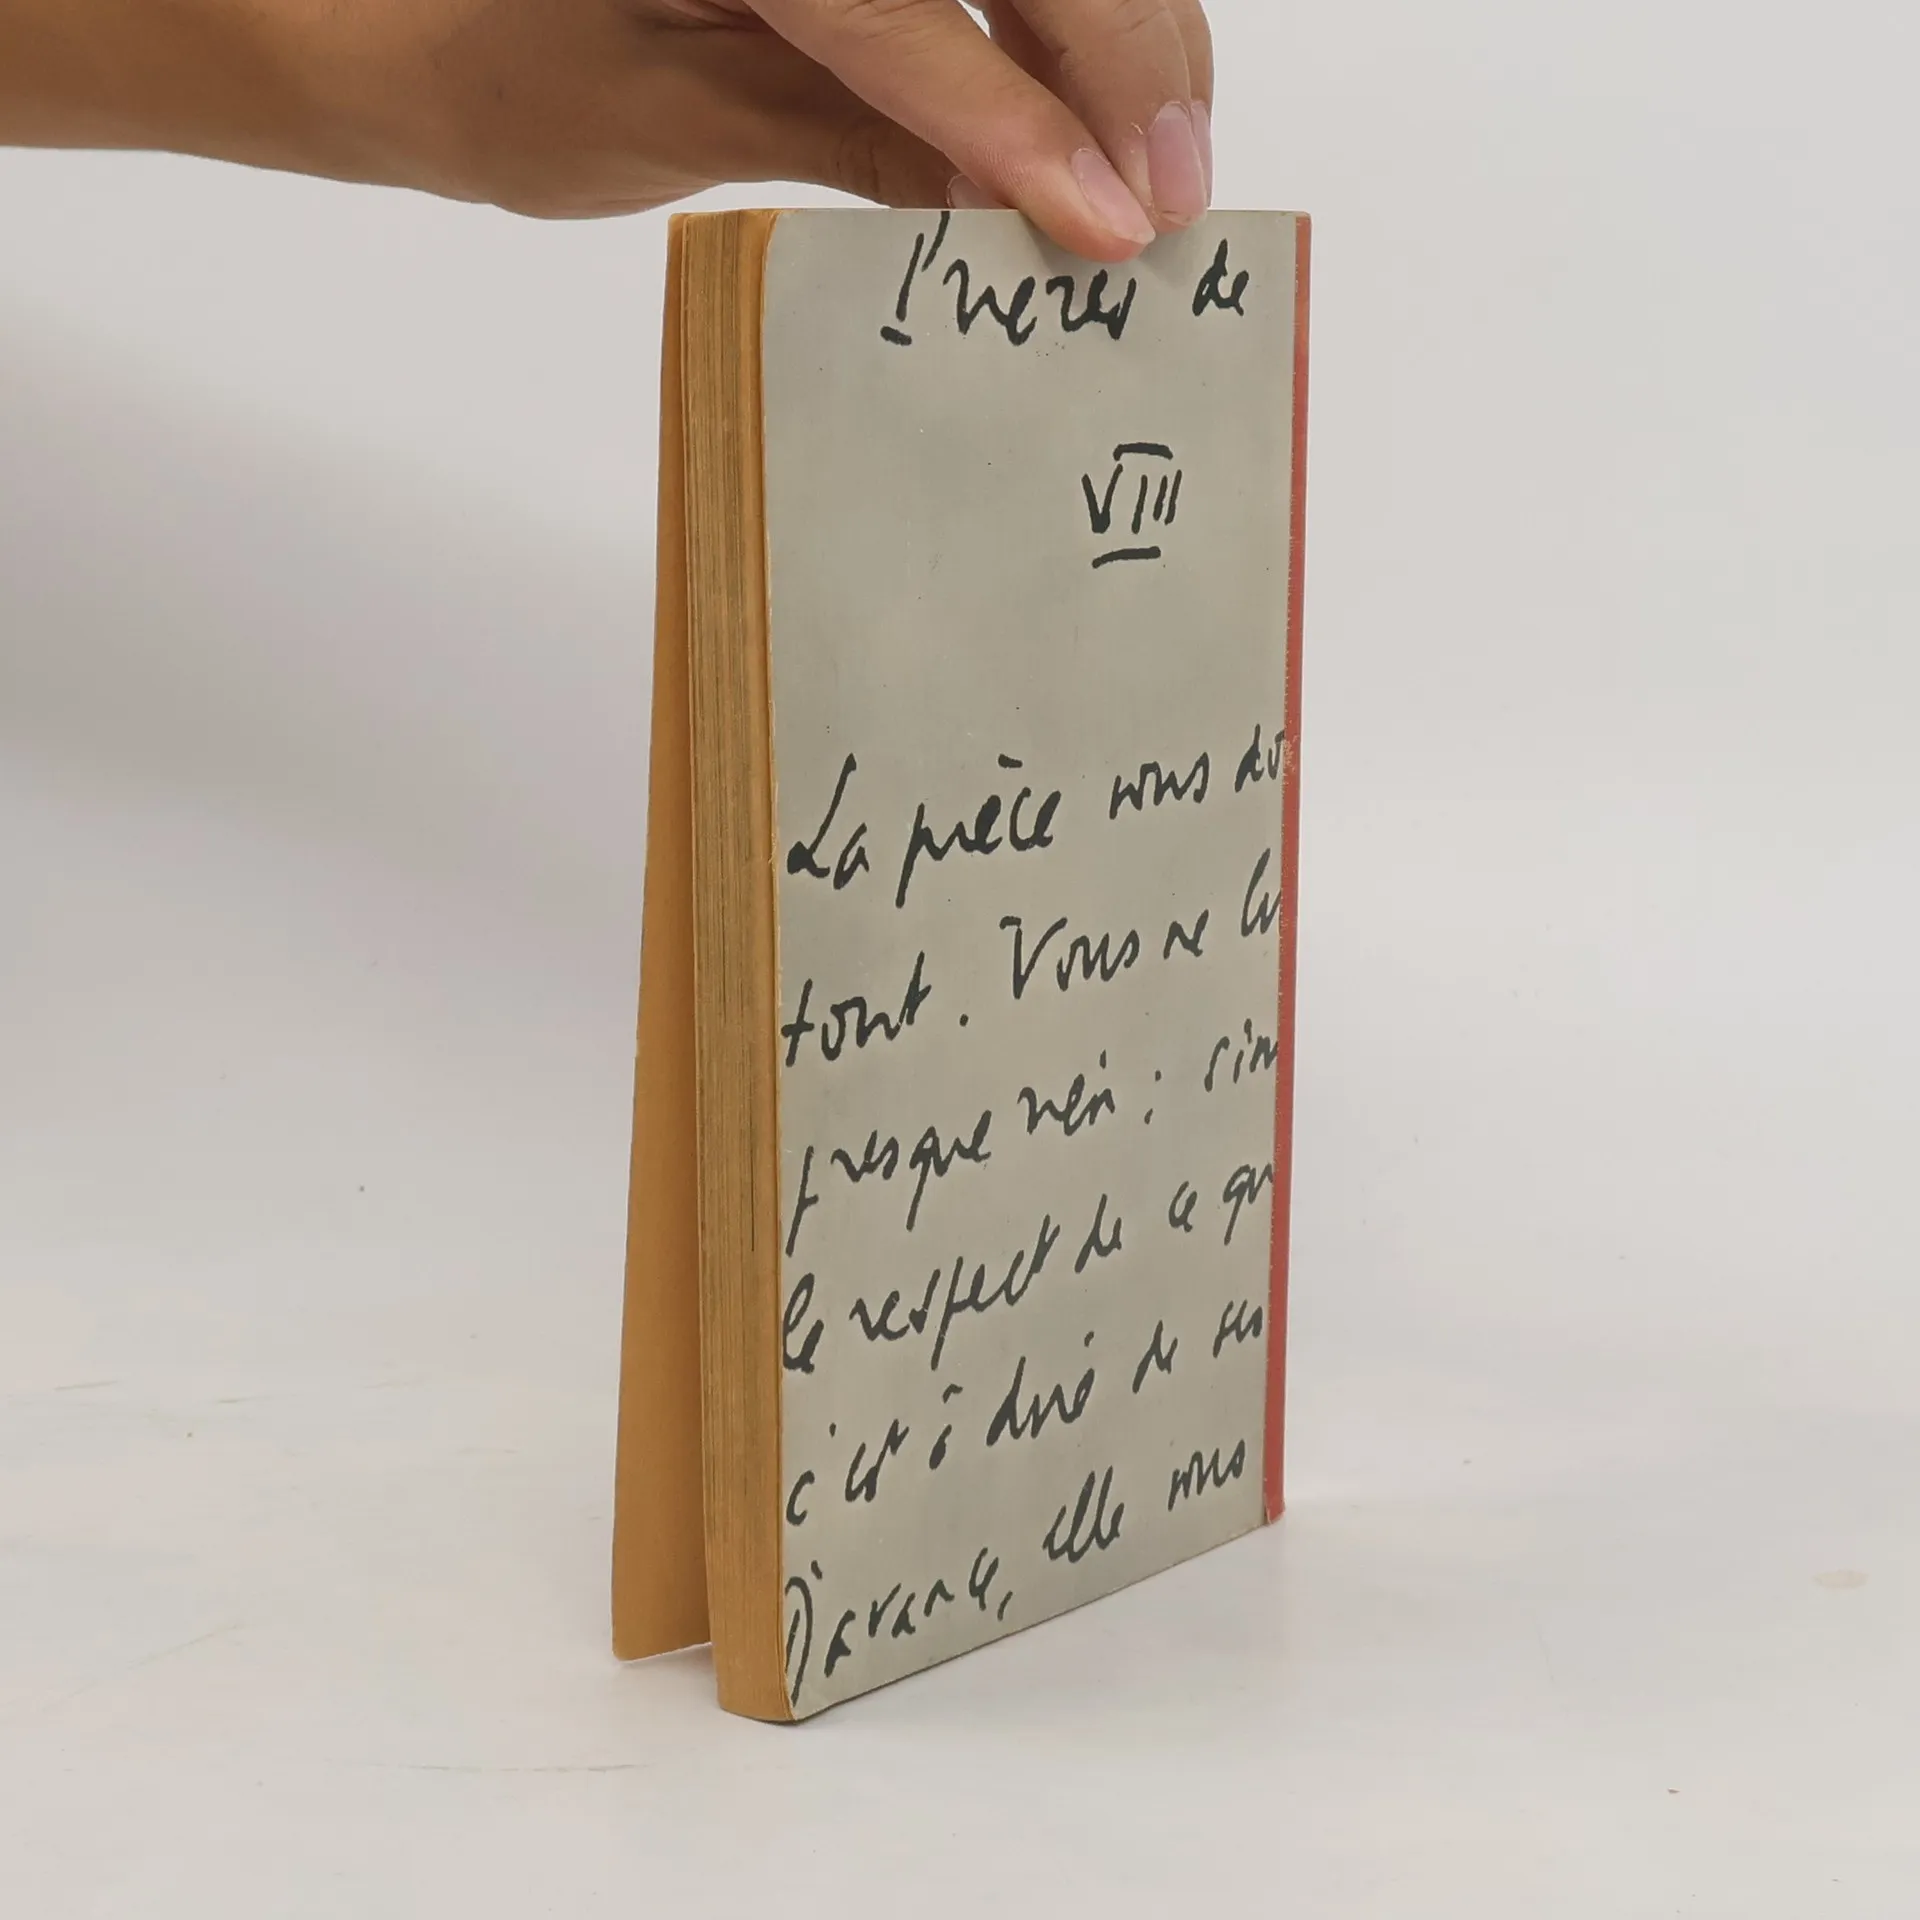 de
VIII
La pièce vous do
tout. Vous ne lu
presque rien : sin
le respect de ce qu
c'est à dire de ses
D'avance, elle vous